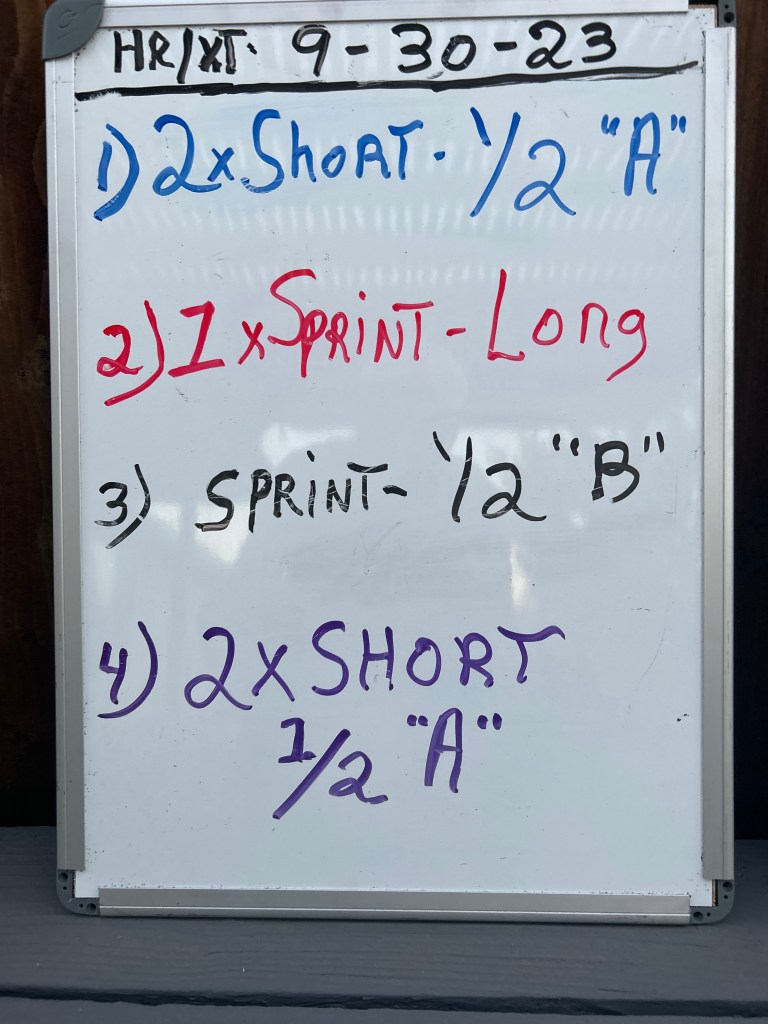 HR/XT. 9-30-23
1) 2xShORT. 1/2 "A"
2) 1xSPRiNT-Long
3) SPRiNT- 1/2 "B"
4) 2XSHORT
1/2 "A"